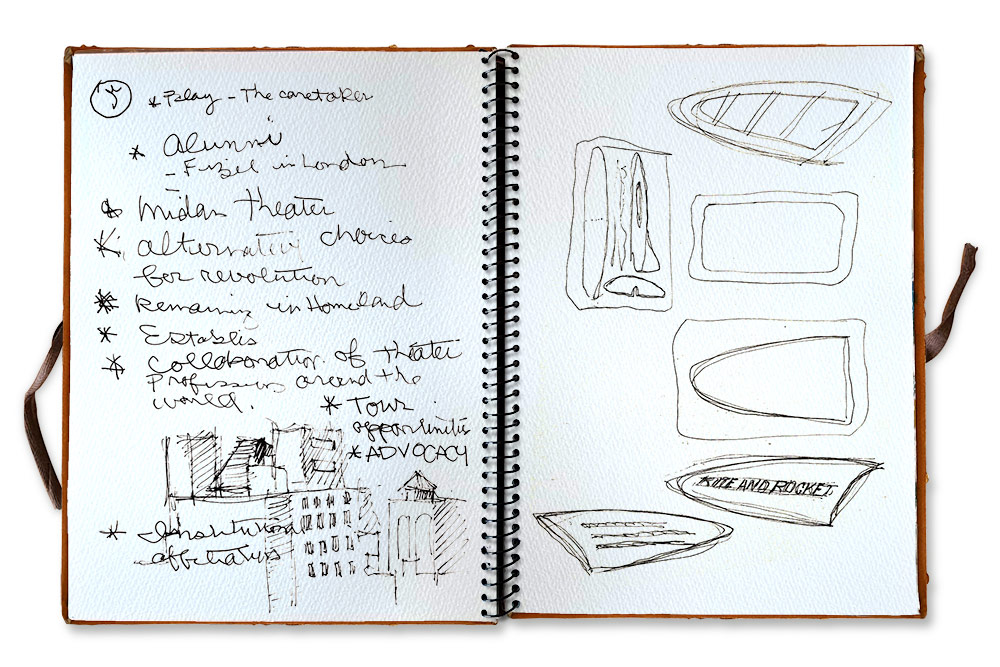 * Play - The caretaker
* Alumni
- in London
-
* Midan Theater
* alternativ choices
for revolution
* Remaining in Homeland
* Establis
* Collaboration of theater
Professors around the
world.
* Tour
opportunitis
* ADVOCACY
* Institutional
affiliations
KITE AND ROCKET